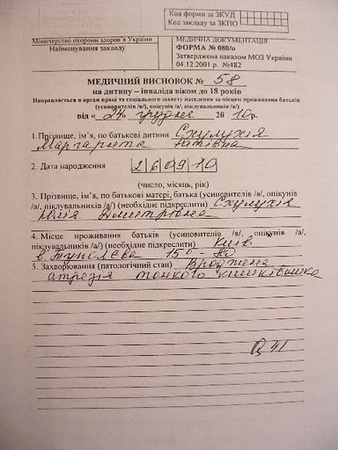 Код форми за ЗКУД
Код закладу за ЗКПО
Міністерство охорони здоров'я України
Найменування закладу
МЕДИЧНА ДОКУМЕНТАЦІЯ
ФОРМА № 080/о
Затверджена наказом МОЗ України
04.12.2001 р. №482
МЕДИЧНИЙ ВИСНОВОК № 58
на дитину – інваліда віком до 18 років
Направляється в орган праці та соціального захисту населення за місцем проживання батьків
(усиновителів /я/, опікунів /а/, піклувальників /а/)
від « 24 » грудня 2010р.
1. Прізвище, ім'я, по батькові дитини Схулухія
Маргарита
2. Дата народження 260910
(число, місяць, рік)
3. Прізвище, ім'я, по батькові матері, батька (усиновителів /я/, опікунів
/а/, піклувальників /а/) (необхідне підкреслити) Схулухія
Юлія Дмитрівна
4. Місце проживання батьків (усиновителів /я/, опікунів /а/,
піклувальників /а/) (необхідне підкреслити) Київ
в. Туполєва
5. Захворювання (патологічний стан) Вроджена
атрезія тонкого кишківника
Q 41